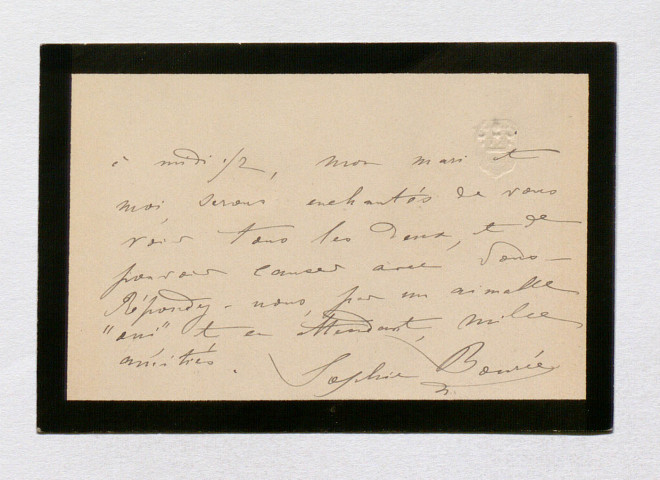 à midi 1/2, mon mari et
moi, serons enchantés de vous
voir tous les deux, et de
pouvoir causer avec vous –
Répondez-nous, par un aimable
"oui" et en attendant, mille
amitiés.
Sophie Bourée